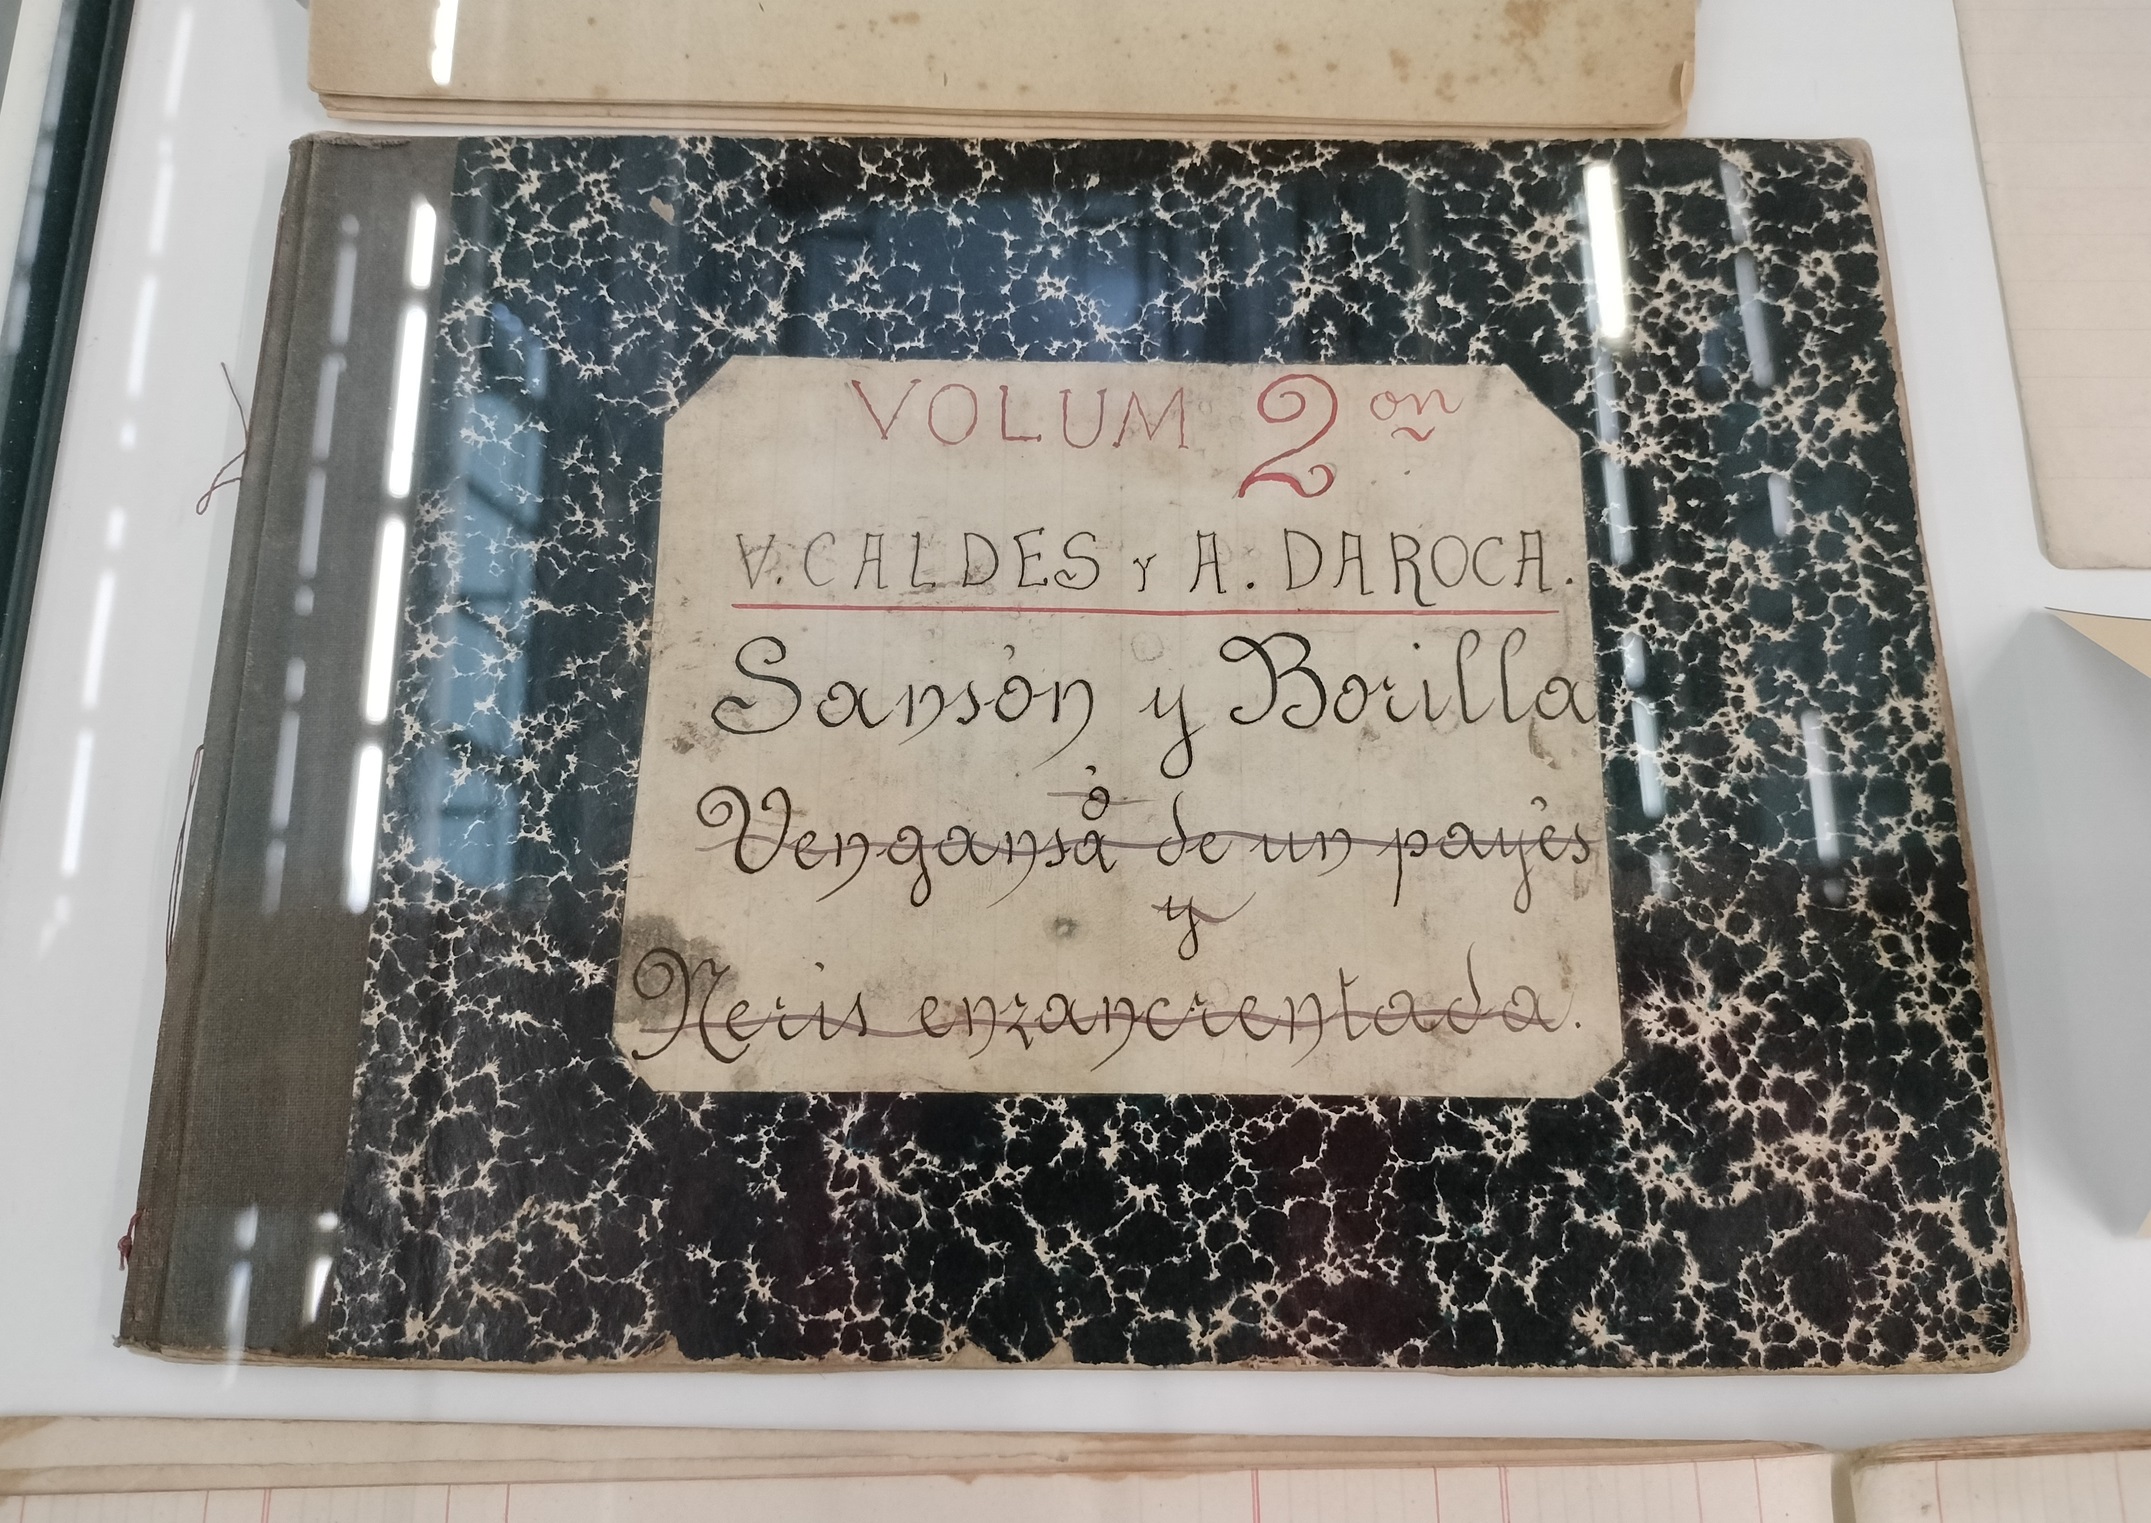 VOLUM 2on
V. CALDES Y A. DAROCA.
Sansón y Borilla
Vengansa de un payés
ó
y
Neris enzancrentada.